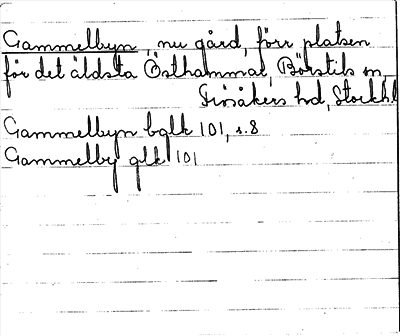 Gammelbyn, nu gård, förr platsen
för det äldsta Östhammar, Börstils sn,
Frösåkers hd, Stockh.l
Gammelbyn bglk 101, s.8
Gammelby glk 101